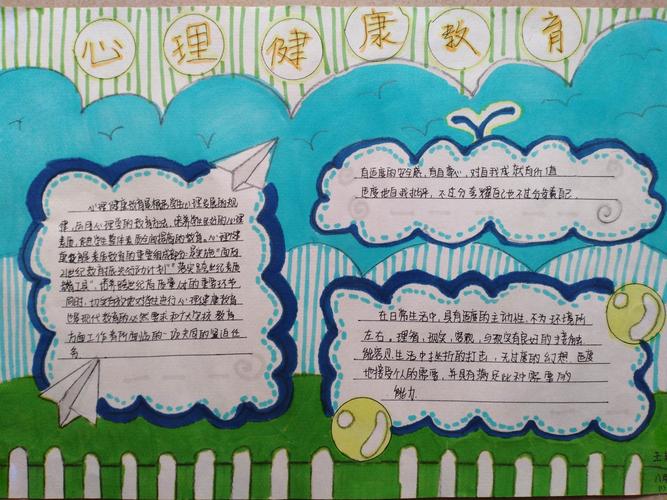 心理健康教育
心理健康教育是根据学生心理发展的规
律,运用心理学的教育方法,培养学生良好的心理
素质,促进学生整体素质全面提高的教育。心理健
康教育是素质教育的重要组成部分,是实施"面向
21世纪教育振兴行动计划",落实跨世纪素质
教育工程",培养跨世纪高质量人才的重要环节
同时,切实有效地对学生进行心理健康教育
也是现代教育的必然要求和广大学校教育
方面工作者所面临的一项共同的紧迫任
务
有适度的安全感,有自尊心,对自我
适度地自我批评,不过分夸耀自己也不过分苛责自己.
在日常生活中,具有适度的主动性,不为环境所
左右。理智,现实,客观,与现实有良好的接触,
能容忍生活中挫折的打击,无过度的幻想.适度
地接受个人的需要,并具有满足此种需要的
能力.